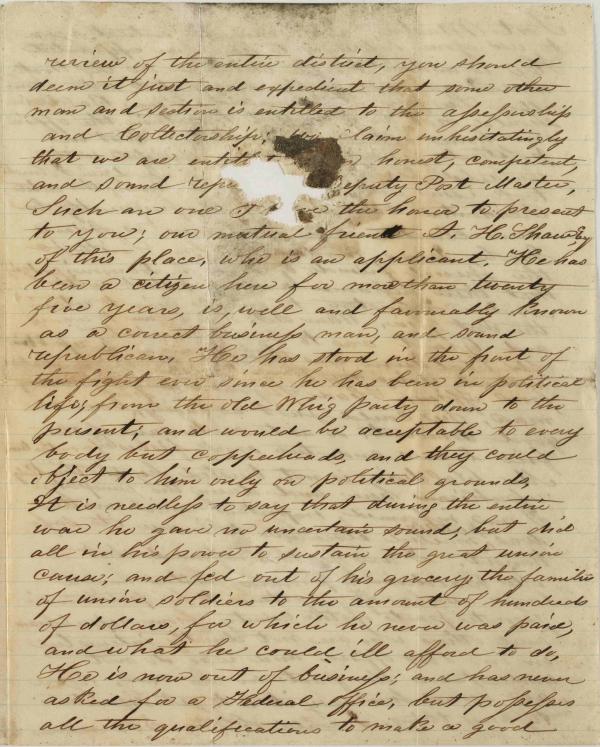 review of the entire distict, you should
deem it just and expedient that some other
man and section is entitled to the assessorship
and Collectorship; claim unhesitatingly
that we are honest, competent,
and sound eputy Post Master,
Such an one the honor to present
to you; our mutual friend A. H. Shaw Esq
of this place, who is an applicant. He has
been a citizen here for more than twenty
five years, is, well and favourably known
as a correct business man, and sound
republican. He has stood in the front of
the fight ever since he has been in political
life; from the old Whig party down to the
present; and would be acceptable to every
body but copperheads, and they could
object to him only on political grounds,
It is needless to say that during the entire
war he gave no uncertain sound; but did
all in his power to sustain the great union
cause; and fed out of his grocery the families
of union soldiers to the amount of hundreds
of dollars, for which he never was paid,
and what he could ill afford to do,
He is now out of business; and has never
asked for a Federal office, but possesses
all the qualifications to make a good